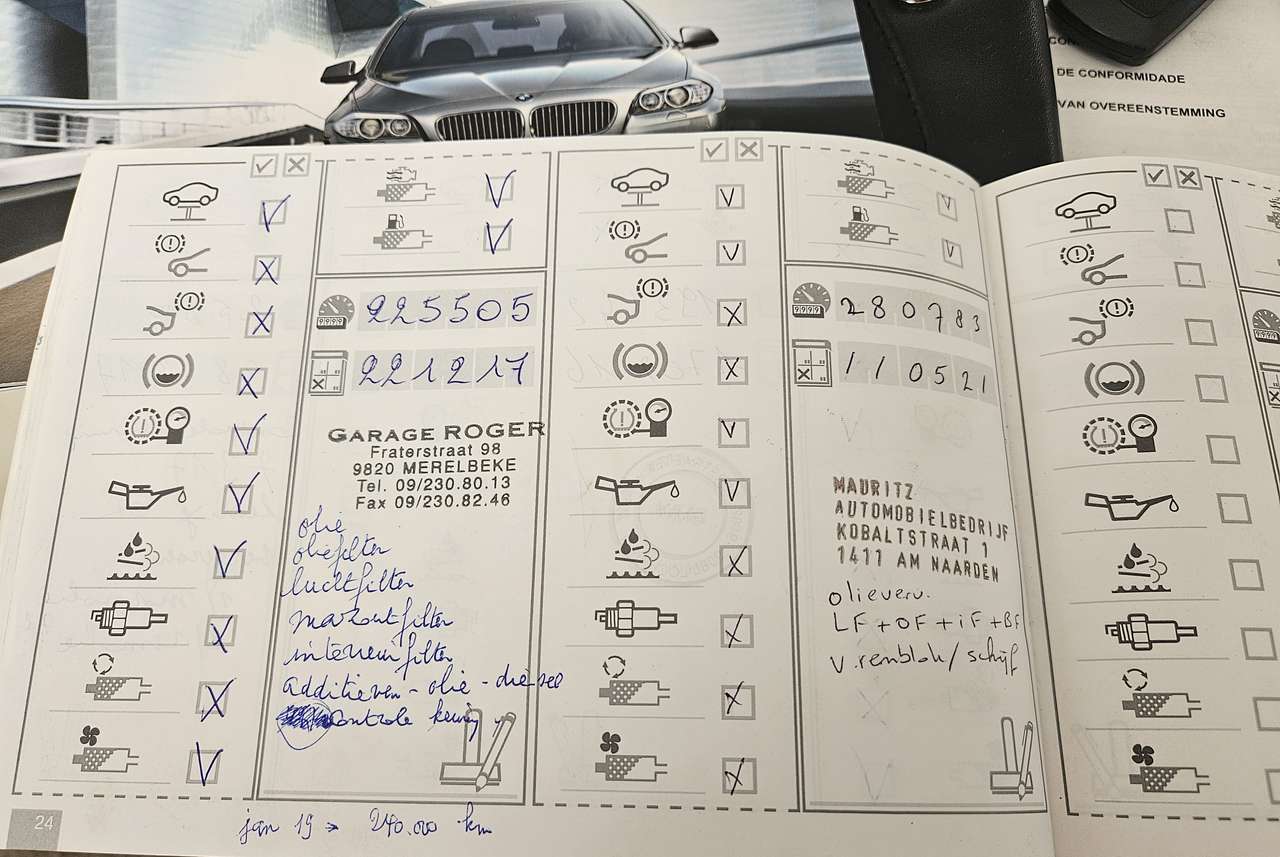 DE CONFORMIDADE
VAN OVEREENSTEMMING
225505
221217
GARAGE ROGER
Fraterstraat 98
9820 MERELBEKE
Tel. 09/230.80.13
Fax 09/230.82.46
olie
oliefilter
luchtfilter
mazoutfilter
interieurfilter
additieven - olie - diesel
controle keuring
jan 19 → 240.000 km
24
280783
110521
MAURITZ
AUTOMOBIELBEDRIJF
KOBALTSTRAAT 1
1411 AM NAARDEN
olieverv.
LF + OF + iF + BF
v. remblok / schijf